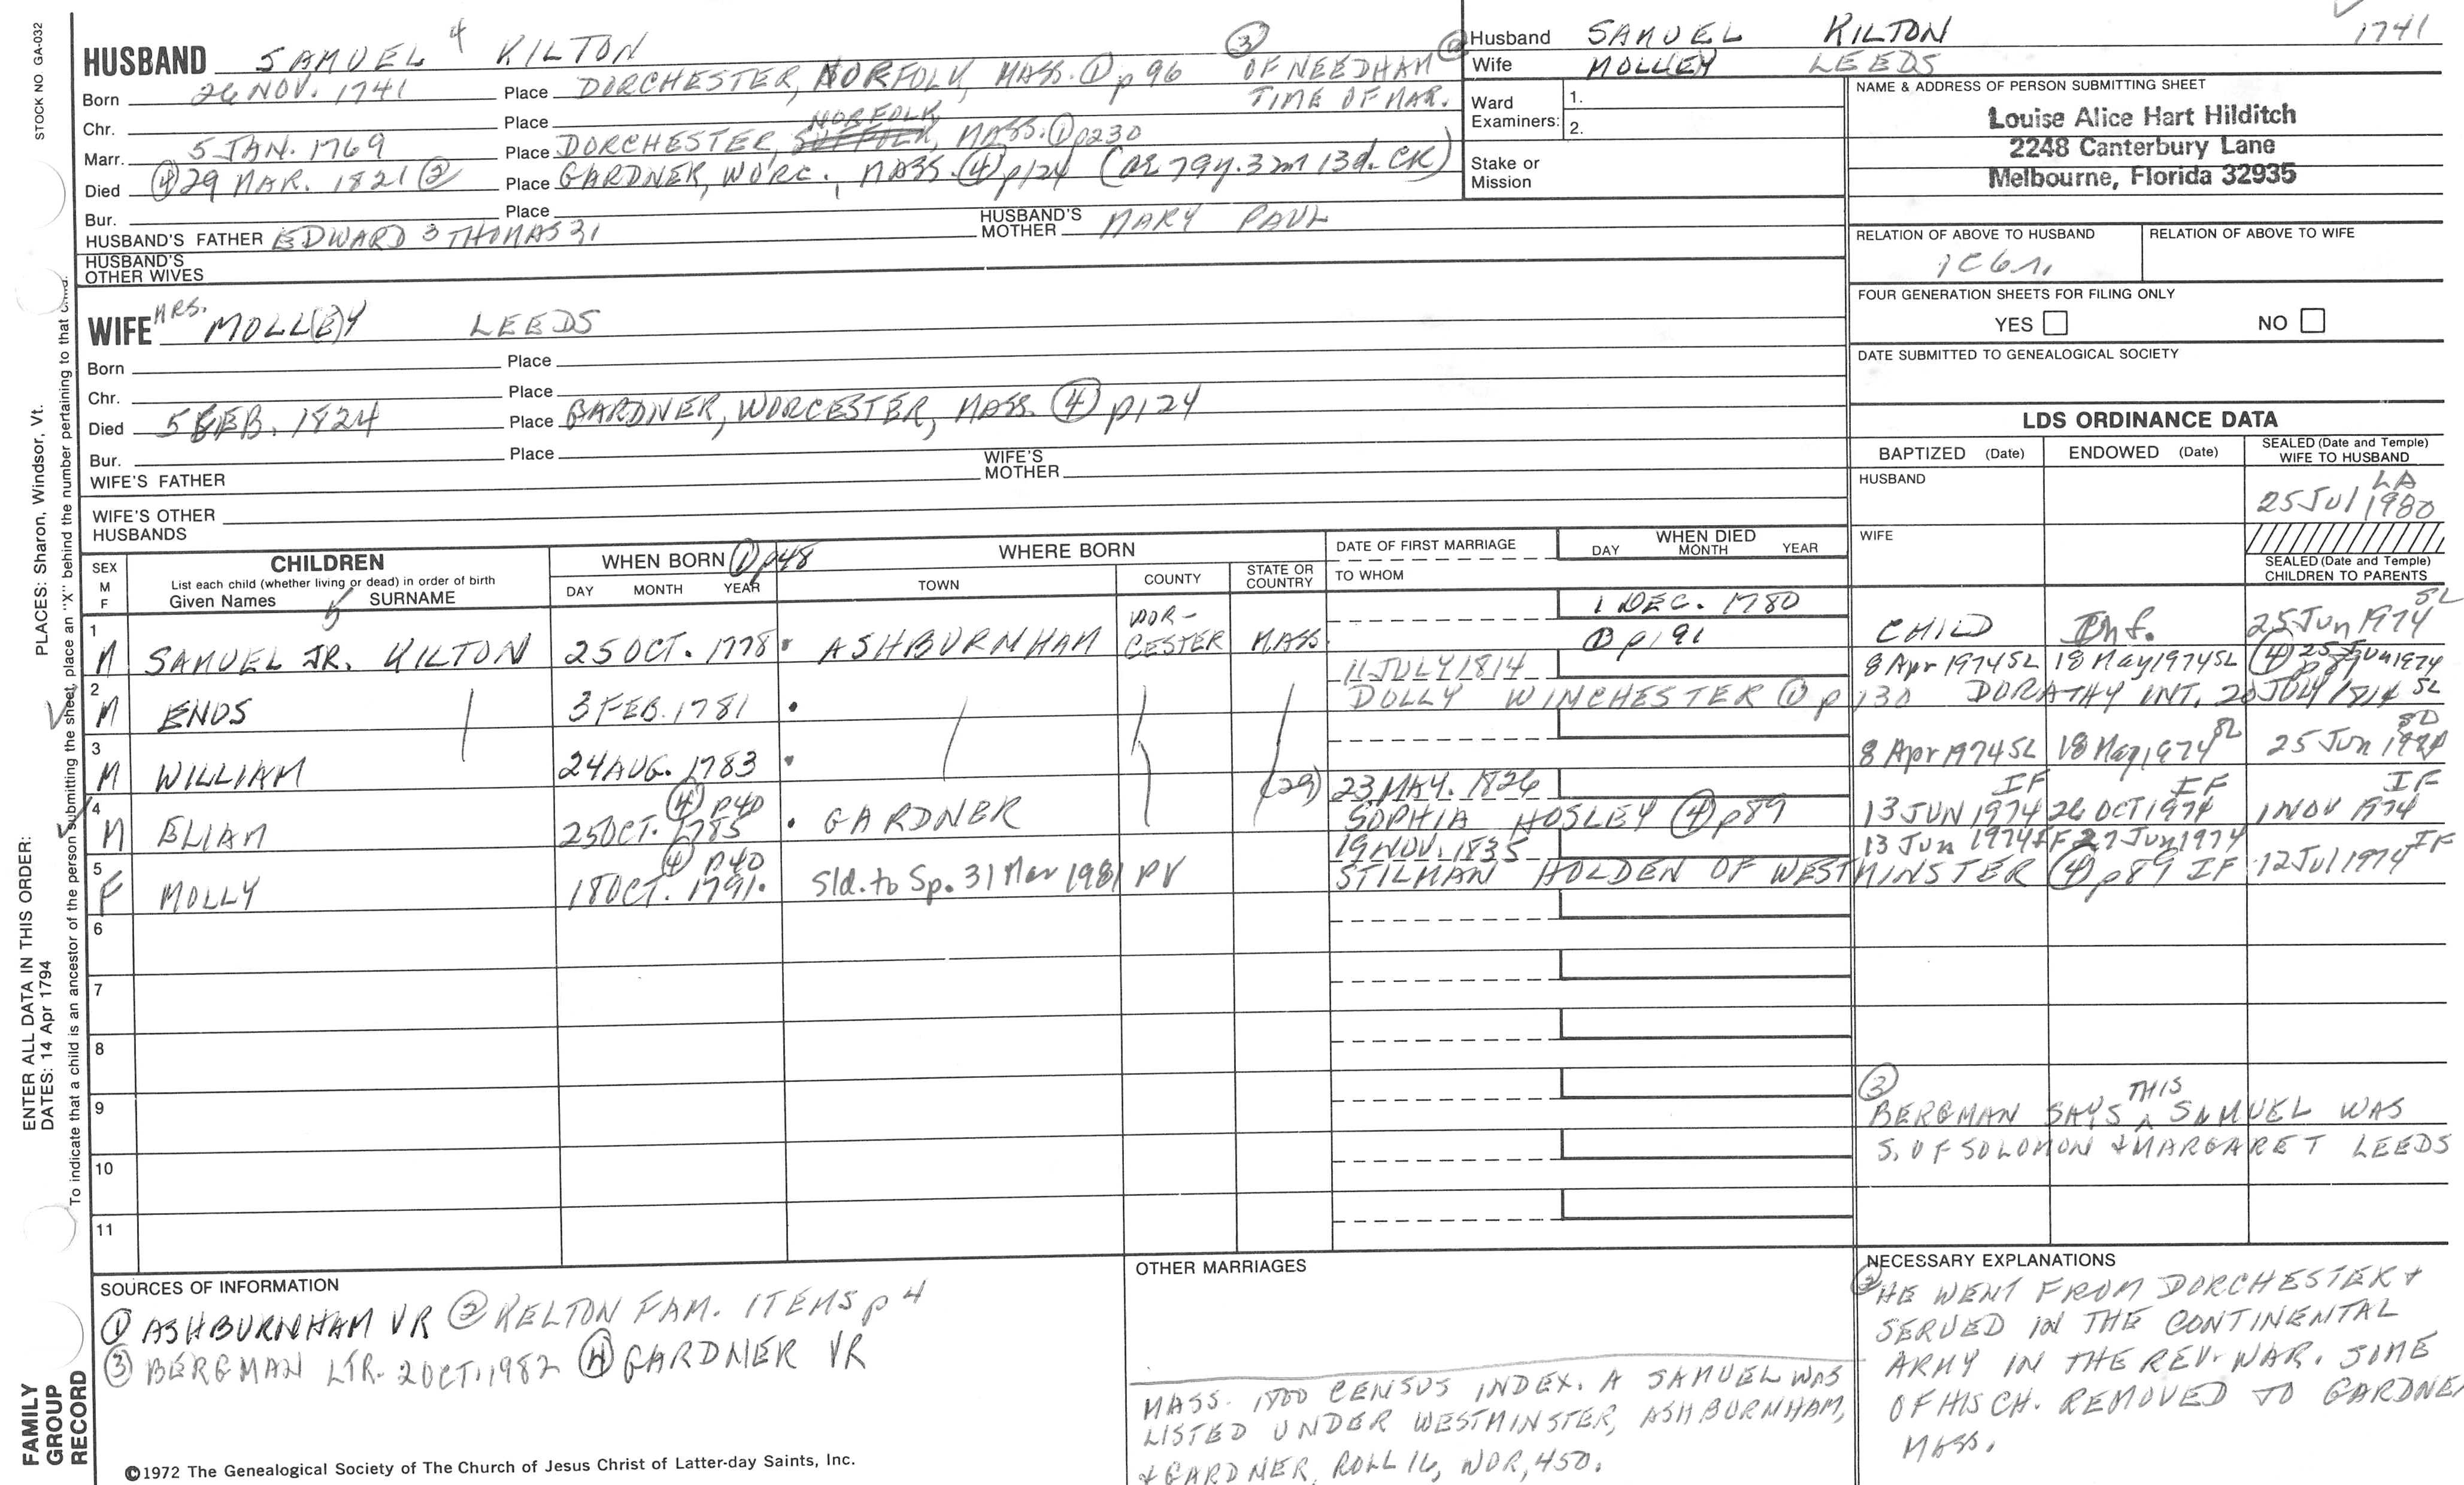 STOCK NO GA-032
HUSBAND SAMUEL 4 KILTON
Born 26 NOV. 1741 Place DORCHESTER, NORFOLK, MASS. ① p 96 ③ OF NEEDHAM
TIME OF MAR.
Chr. Place
NORFOLK
Marr. 5 JAN. 1769 Place DORCHESTER, SUFFOLK, MASS. ① p230
Died ④ 29 MAR. 1821 ② Place GARDNER, WORC., MASS. ④ p124 (AE 79y. 3m 13d. CK)
Bur. Place
HUSBAND'S FATHER EDWARD 3 THOMAS 31 HUSBAND'S MOTHER MARY PAUL
HUSBAND'S
OTHER WIVES
Husband SAMUEL KILTON 1741
Wife MOLLEY LEEDS
Ward
Examiners: 1.
2.
Stake or
Mission
NAME & ADDRESS OF PERSON SUBMITTING SHEET
Louise Alice Hart Hilditch
2248 Canterbury Lane
Melbourne, Florida 32935
RELATION OF ABOVE TO HUSBAND RELATION OF ABOVE TO WIFE
1C6r.
FOUR GENERATION SHEETS FOR FILING ONLY
YES NO
DATE SUBMITTED TO GENEALOGICAL SOCIETY
WIFE MRS. MOLL(E)Y LEEDS
Born Place
Chr. Place
Died 5 FEB. 1824 Place GARDNER, WORCESTER, MASS. ④ p124
Bur. Place
WIFE'S FATHER WIFE'S MOTHER
WIFE'S OTHER
HUSBANDS
LDS ORDINANCE DATA
BAPTIZED (Date) ENDOWED (Date) SEALED (Date and Temple)
WIFE TO HUSBAND
HUSBAND LA
25 Jul 1980
WIFE
SEALED (Date and Temple)
CHILDREN TO PARENTS
SEX
M
F
CHILDREN
List each child (whether living or dead) in order of birth
Given Names 5 SURNAME
WHEN BORN ① p48
DAY MONTH YEAR
WHERE BORN
TOWN COUNTY STATE OR COUNTRY
DATE OF FIRST MARRIAGE
TO WHOM
WHEN DIED
DAY MONTH YEAR
1 M SAMUEL JR. KILTON 25 OCT. 1778 ASHBURNHAM WOR-CESTER MASS. 1 DEC. 1780 ① p191 CHILD Inf. 25 Jun 1974 SL
2 M ENOS 3 FEB. 1781 11 JULY 1814 8 Apr 1974 SL 18 May 1974 SL ④ p89 25 Jun 1974
DOLLY WINCHESTER ① p 130 DORATHY INT. 20 JULY 1814 SL
3 M WILLIAM 24 AUG. 1783 8 Apr 1974 SL 18 May 1974 SL 25 Jun 1974
4 M ELIAM ④ p40 25 OCT. 1785 GARDNER (29) 23 MAY. 1826 IF IF IF
SOPHIA HOSLEY ④ p89 13 JUN 1974 26 OCT 1974 1 NOV 1974
5 F MOLLY ④ p40 18 OCT. 1791. Sld. to Sp. 31 Mar 1981 PV 19 NOV. 1835 13 Jun 1974 IF 27 Jun 1974
STILMAN HOLDEN OF WESTMINSTER ④ p89 IF 12 Jul 1974 IF
6
7
8
9
10
11
③
BERGMAN SAYS THIS SAMUEL WAS
S. OF SOLOMON & MARGARET LEEDS
SOURCES OF INFORMATION
① ASHBURNHAM VR ② KELTON FAM. ITEMS p 4
③ BERGMAN LTR. 2 OCT. 1982 ④ GARDNER VR
©1972 The Genealogical Society of The Church of Jesus Christ of Latter-day Saints, Inc.
OTHER MARRIAGES
MASS. 1800 CENSUS INDEX. A SAMUEL WAS
LISTED UNDER WESTMINSTER, ASHBURNHAM,
& GARDNER, ROLL 16, WOR, 450.
NECESSARY EXPLANATIONS
② HE WENT FROM DORCHESTER &
SERVED IN THE CONTINENTAL
ARMY IN THE REV. WAR. SOME
OF HIS CH. REMOVED TO GARDNE
MASS.
ENTER ALL DATA IN THIS ORDER:
DATES: 14 Apr 1794
PLACES: Sharon, Windsor, Vt.
To indicate that a child is an ancestor of the person submitting the sheet, place an "X" behind the number pertaining to that child.
FAMILY
GROUP
RECORD